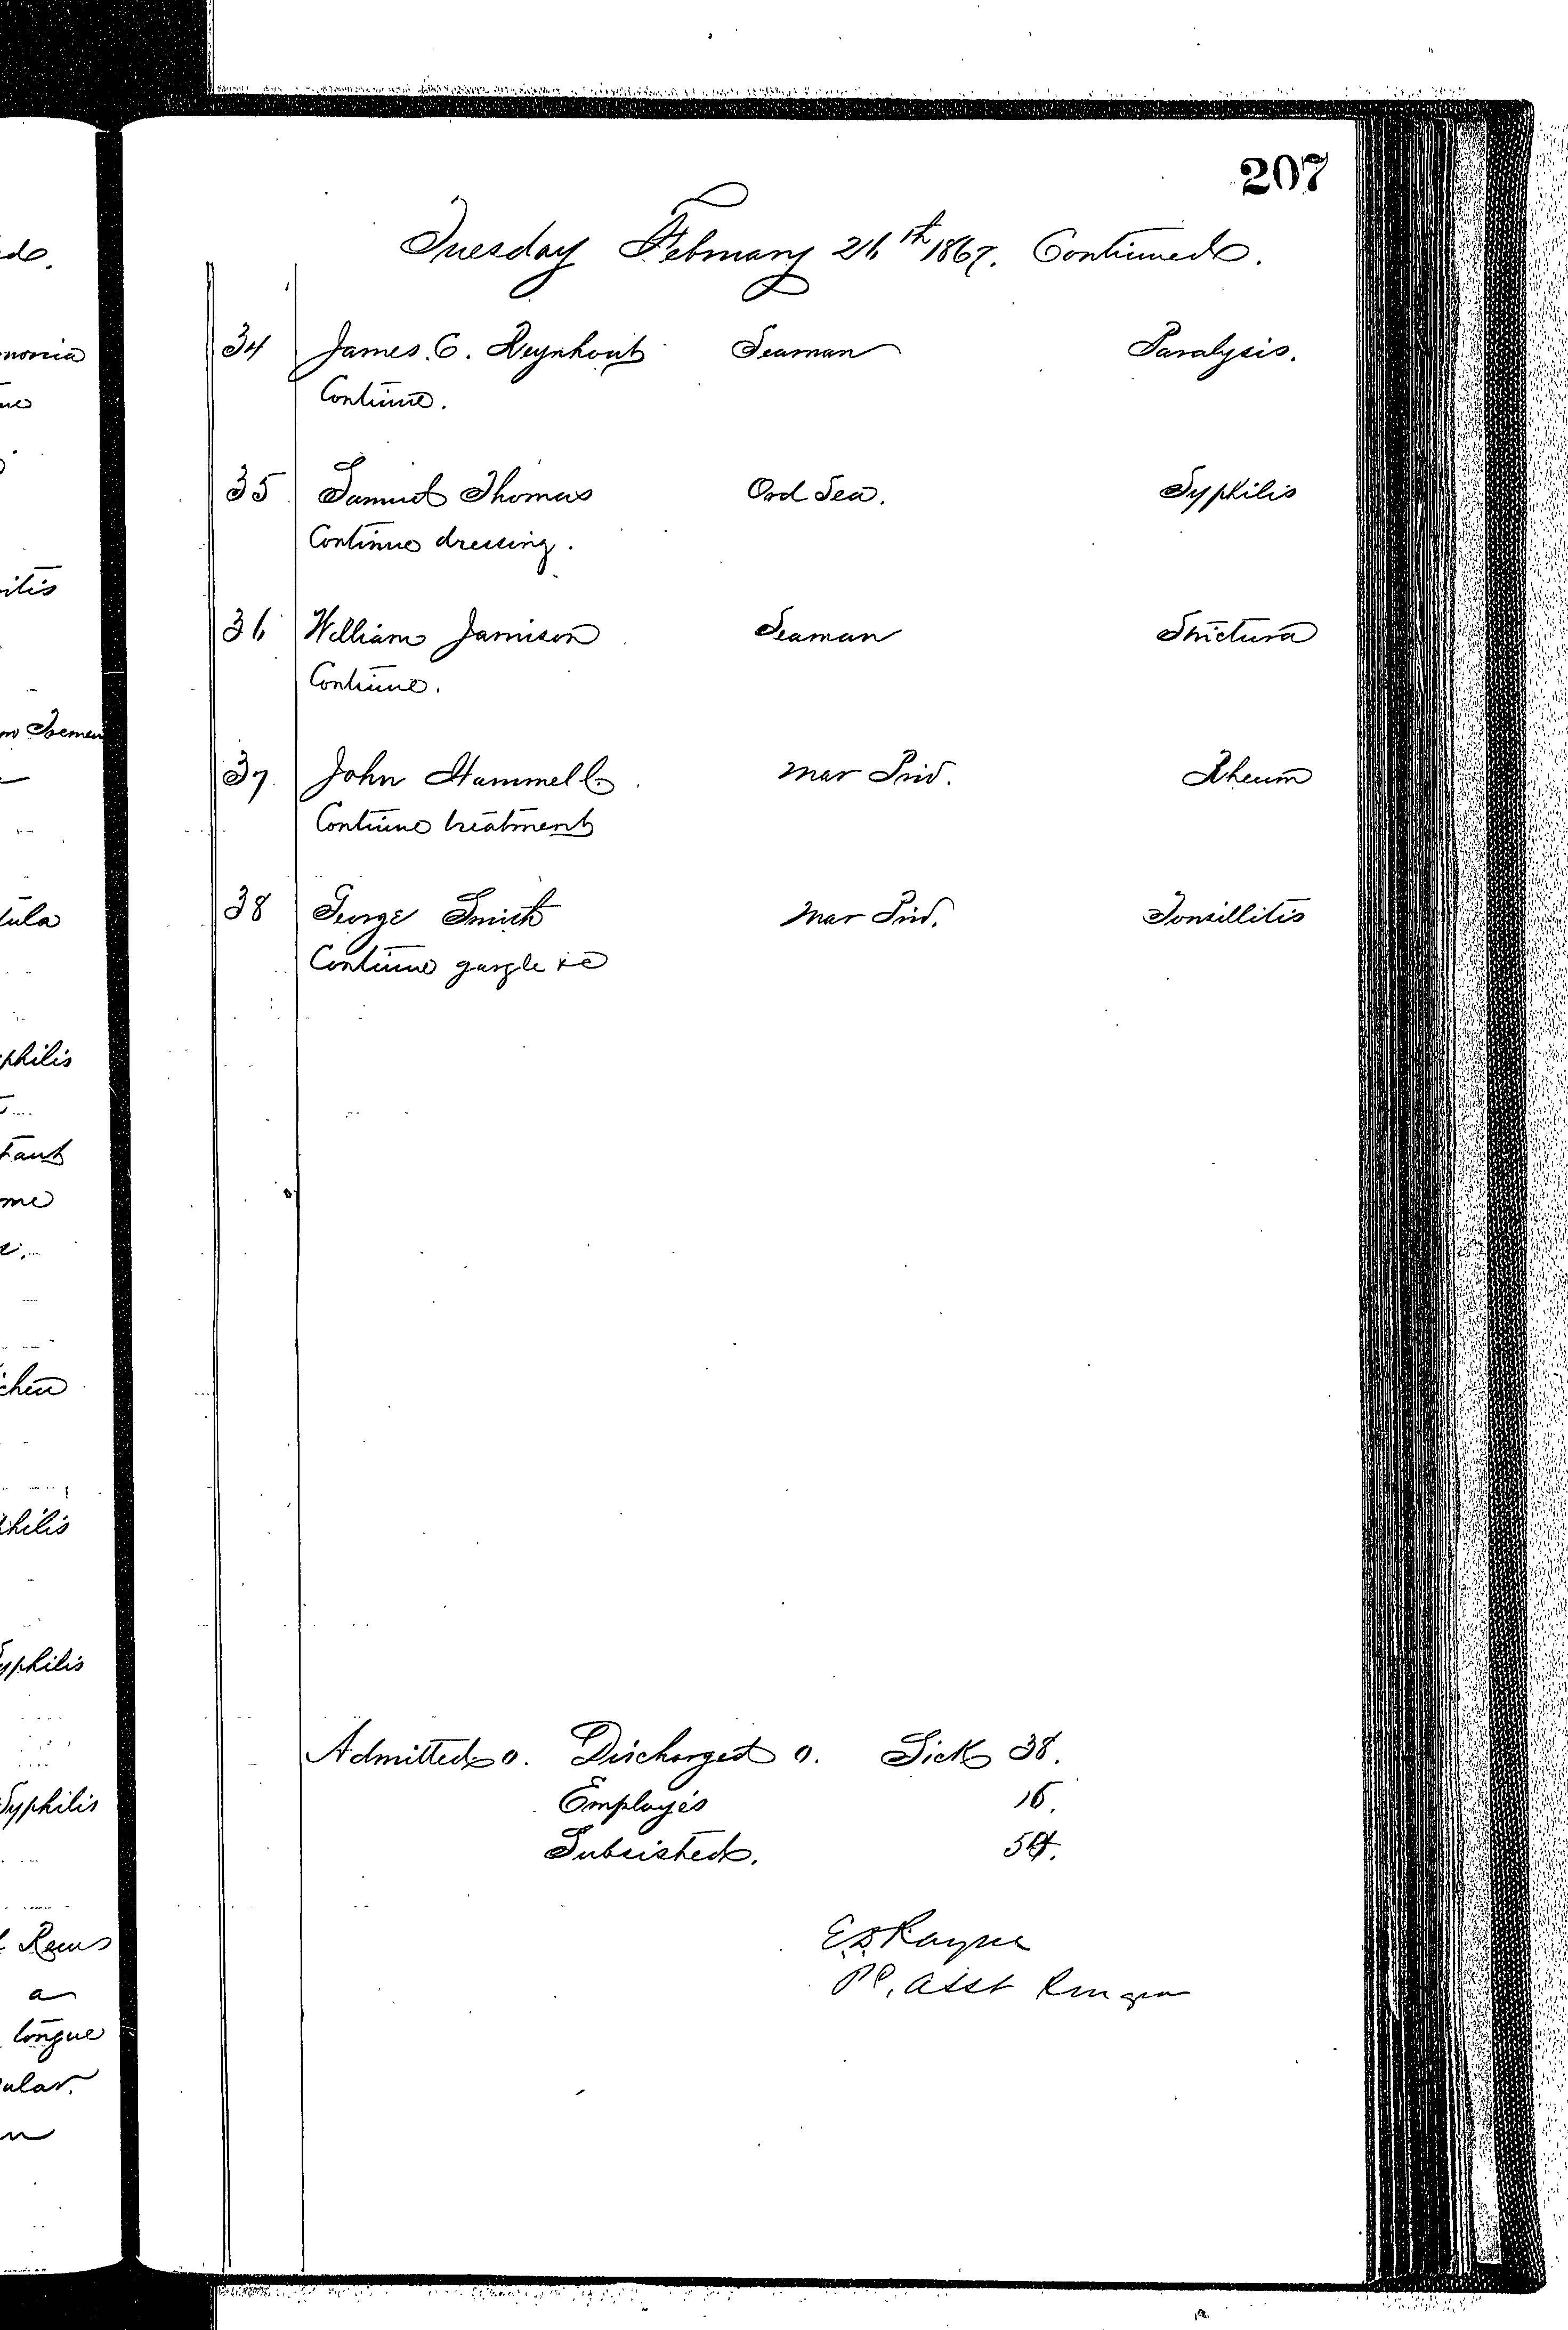 207
Tuesday February 26th 1867. Continued.
34 James. C. Reynhout Seaman Paralysis.
Continue.
35 Samuel Thomas Ord Sea. Syphilis
Continue dressing.
36 William Jamison Seaman Strictura
Continue.
37 John Hammell. Mar Priv. Rheum
Continue treatment
38 George Smith Mar Priv. Tonsillitis
Continue gargle &c
Admitted 0. Discharged 0. Sick 38.
Employés 16.
Subsisted. 54.
P. Asst Surgeon
ed.
monia
itis
tula
philis
me
chen
philis
yphilis
Syphilis
Recus
a
tongue
ular.